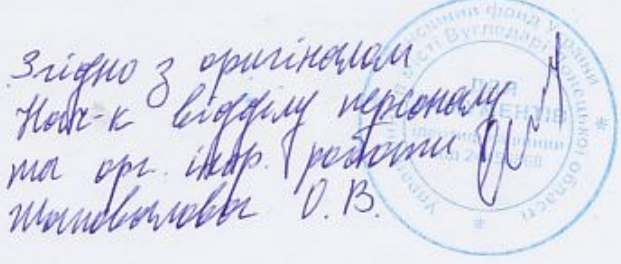 Згідно з оригіналом
Нач-к відділу персоналу
та орг. інф. роботи
Шаповалова О. В.
фонд України
в місті Вугледарі Донецької області
ДЛЯ